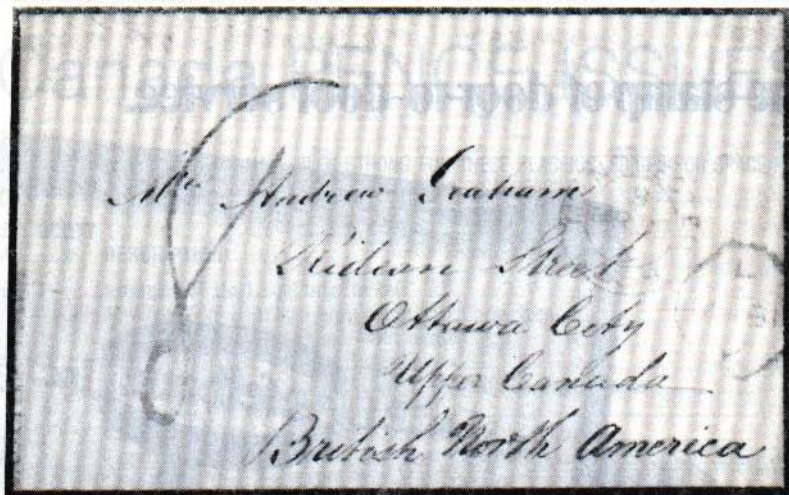 Mr Andrew Graham
Rideau Street
Ottawa City
Upper Canada
British North America